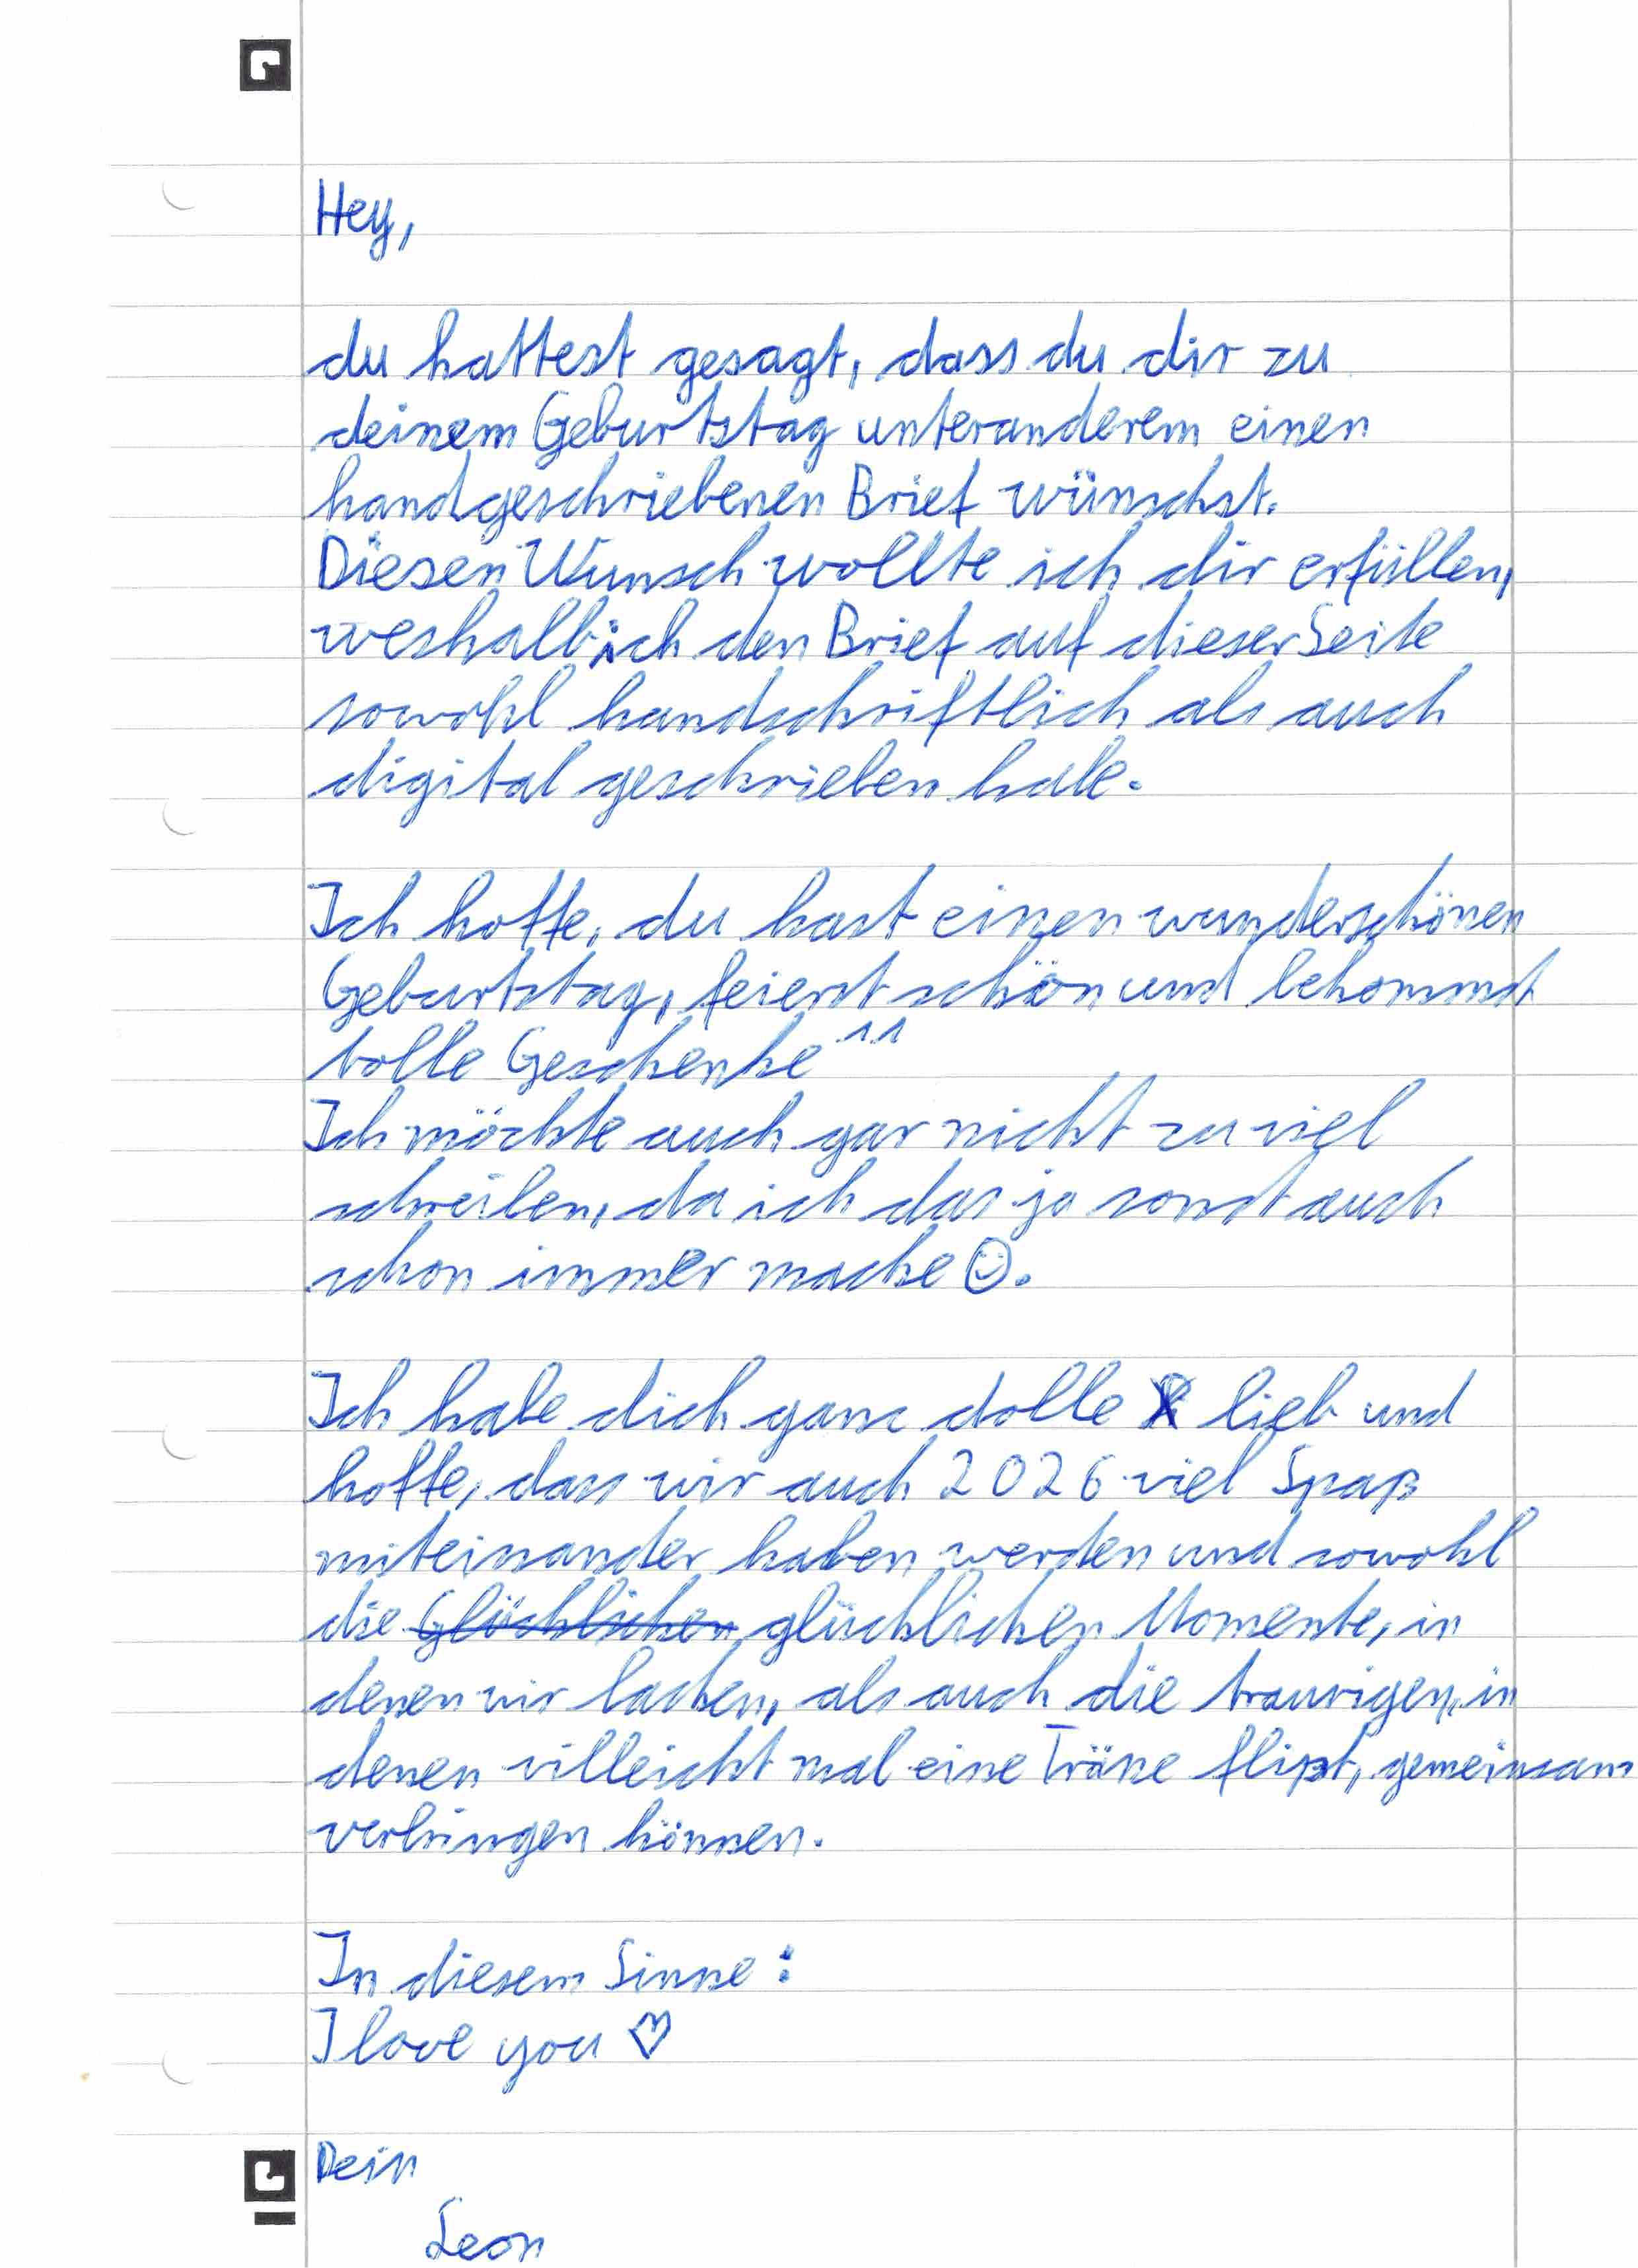 Hey,
du hattest gesagt, dass du dir zu
deinem Geburtstag unteranderem einen
handgeschriebenen Brief wünschst.
Diesen Wunsch wollte ich dir erfüllen,
weshalb ich den Brief auf dieser Seite
sowohl handschriftlich als auch
digital geschrieben habe.
Ich hoffe, du hast einen wunderschönen
Geburtstag, feierst schön und bekommst
tolle Geschenke ^^
Ich möchte auch gar nicht zu viel
schreiben, da ich das ja sonst auch
schon immer mache ☺.
Ich habe dich ganz dolle lieb und
hoffe, dass wir auch 2026 viel Spaß
miteinander haben werden und sowohl
die Glücklichen glücklichen Momente, in
denen wir lachen, als auch die traurigen, in
denen villeicht mal eine Träne fließt, gemeinsam
verbringen können.
In diesem Sinne:
I love you ♡
Dein
Leon